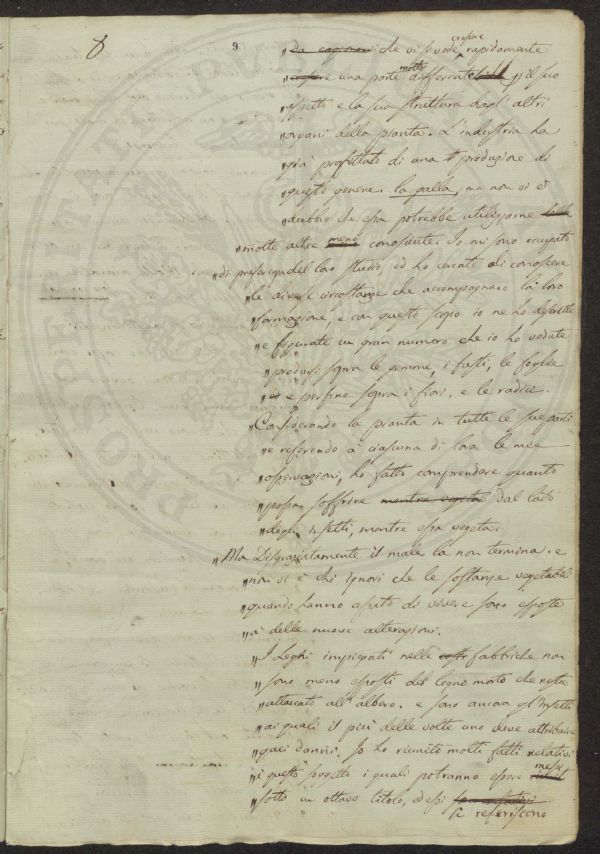 8 9
„ da cagionarsi che vi si vede crescere rapidamente
„ crescere una parte molto differente per il suo
„ aspetto e la sua struttura dagl' altri
„ organi della pianta. L'industria ha
„ già profittato di una produzione di
„ questo genere. la galla, ma non vi è
„ dubbio che essa potrebbe utilizzarne
„ molte altre meno conosciute. Io mi sono occupato
„ di preferenza del loro studio, ed ho cercato di conoscere
„ le diverse circostanze che accompagnano la loro
„ formazione, e con questo scopo io ne ho descritte
„ e figurate un gran numero che io ho vedute
„ prodursi sopra le gemme, i fusti, le foglie
„ ed e persine sopra i fiori, e le radici.
„ Considerando la pianta in tutte le sue parti
„ e referendo a ciascuna di loro le mie
„ osservazioni, ho fatto comprendere quanto
„ possa soffrire mentre vegeta dal lato
„ degli insetti, mentre essa vegeta.
„ Ma Disgraziatamente il male la non termina. e
„ non vi è chi ignori che le sostanze vegetabili
„ quando hanno cessato di vivere sono esposte
„ a delle nuove alterazioni.
„ I Legni impiegati nelle fabbriche non
„ sono meno esposti del legno morto che resta
„ attaccato all' albero. e sono ancora gl' insetti
„ ai quali il più delle volte uno deve attribuire
„ quei danni. Io ho riunito molti fatti relativi
„ a questo soggetto i quali potranno essere messi
„ sotto un ottavo titolo, ed essi
si referiscono